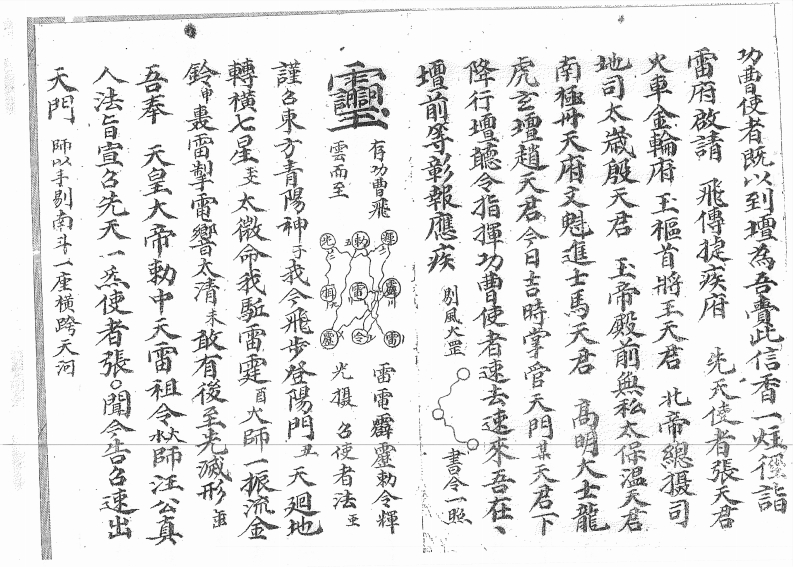 功曹使者既以到壇為吾賫此信香一炷徑詣
雷府啟請　飛傳捷疾府　先天使者張天君
火車金輪府　玉樞首將王天君　北帝總攝司
地司太歲殷天君　玉帝殿前無私太保溫天君
南極丹天府文魁進士馬天君　高明大士龍
虎玄壇趙天君今日吉時掌管天門某天君下
降行壇聽令指揮功曹使者速去速來吾在、
壇前等彰報應疾　剔風火罡　書令一照
有功曹飛
雲而至
雷電霹靂勅令輝
光攝　召使者法
謹召東方青陽神子我今飛步登陽門丑天廻地
轉橫七星　太微命我駈雷霆酉火師一振流金
鈴申轟雷掣電響太清未敢有後至先滅形
吾奉　天皇大帝勅中天雷祖令火師汪公真
人法旨宣召先天一炁使者張○聞今告召速出
天門　師以手剔南斗一座橫跨天河